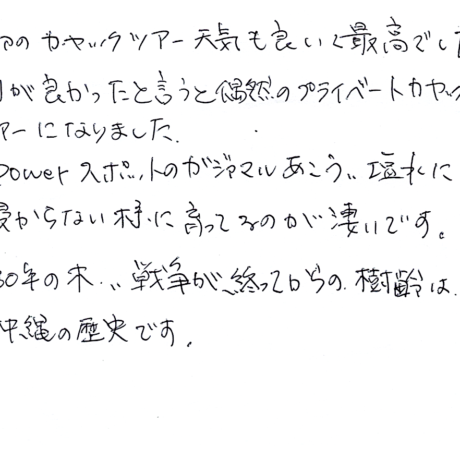 のカヤックツアー天気も良いく最高でした
が良かったと言うと偶然のプライベートカヤック
アーになりました.
powerスポットのガジャマルあこう、塩水に
浸からない様に育ってるのが凄いです。
30年の木、戦争が終ってからの樹齢は.
沖縄の歴史です.